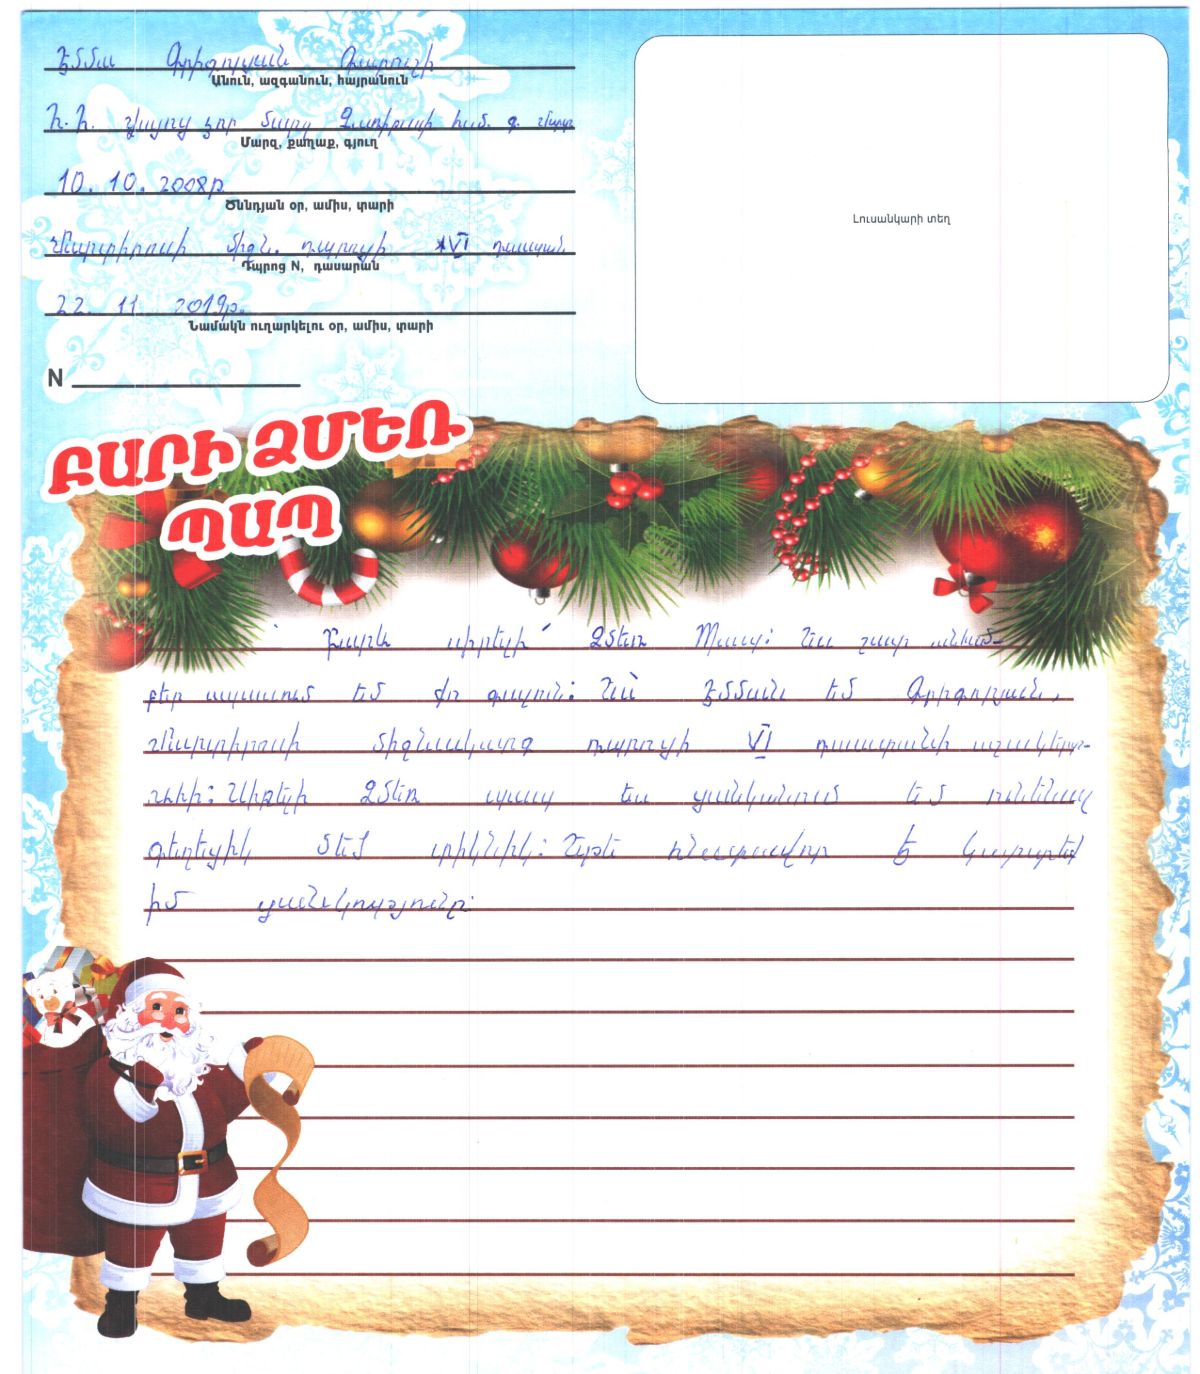 Էմմա Գրիգորյան Գարուշի
Անուն, ազգանուն, հայրանուն
Հ.Հ. Վայոց ձոր մարզ Զառիթափի համ. գ. Մարտ
Մարզ, քաղաք, գյուղ
10. 10. 2008թ
Ծննդյան օր, ամիս, տարի
Մարտիրոսի միջն. դպրոցի VI դասարան
Դպրոց N, դասարան
22. 11 2019թ.
Նամակն ուղարկելու օր, ամիս, տարի
N
Լուսանկարի տեղ
ԲԱՐԻ ՁՄԵՌ
ՊԱՊ
Բարև սիրելի՛ Ձմեռ Պապ: Ես շատ անհամ-
բեր սպասում եմ քո գալուն: Ես՝ Էմման եմ Գրիգորյան,
Մարտիրոսի միջնակարգ դպրոցի VI դասարանի աշակերտ-
ուհի: Սիրելի Ձմեռ պապ ես ցանկանում եմ ունենալ
գեղեցիկ մեծ տիկնիկ: Եթե հնարավոր է կատարեք
իմ ցանկությունը: